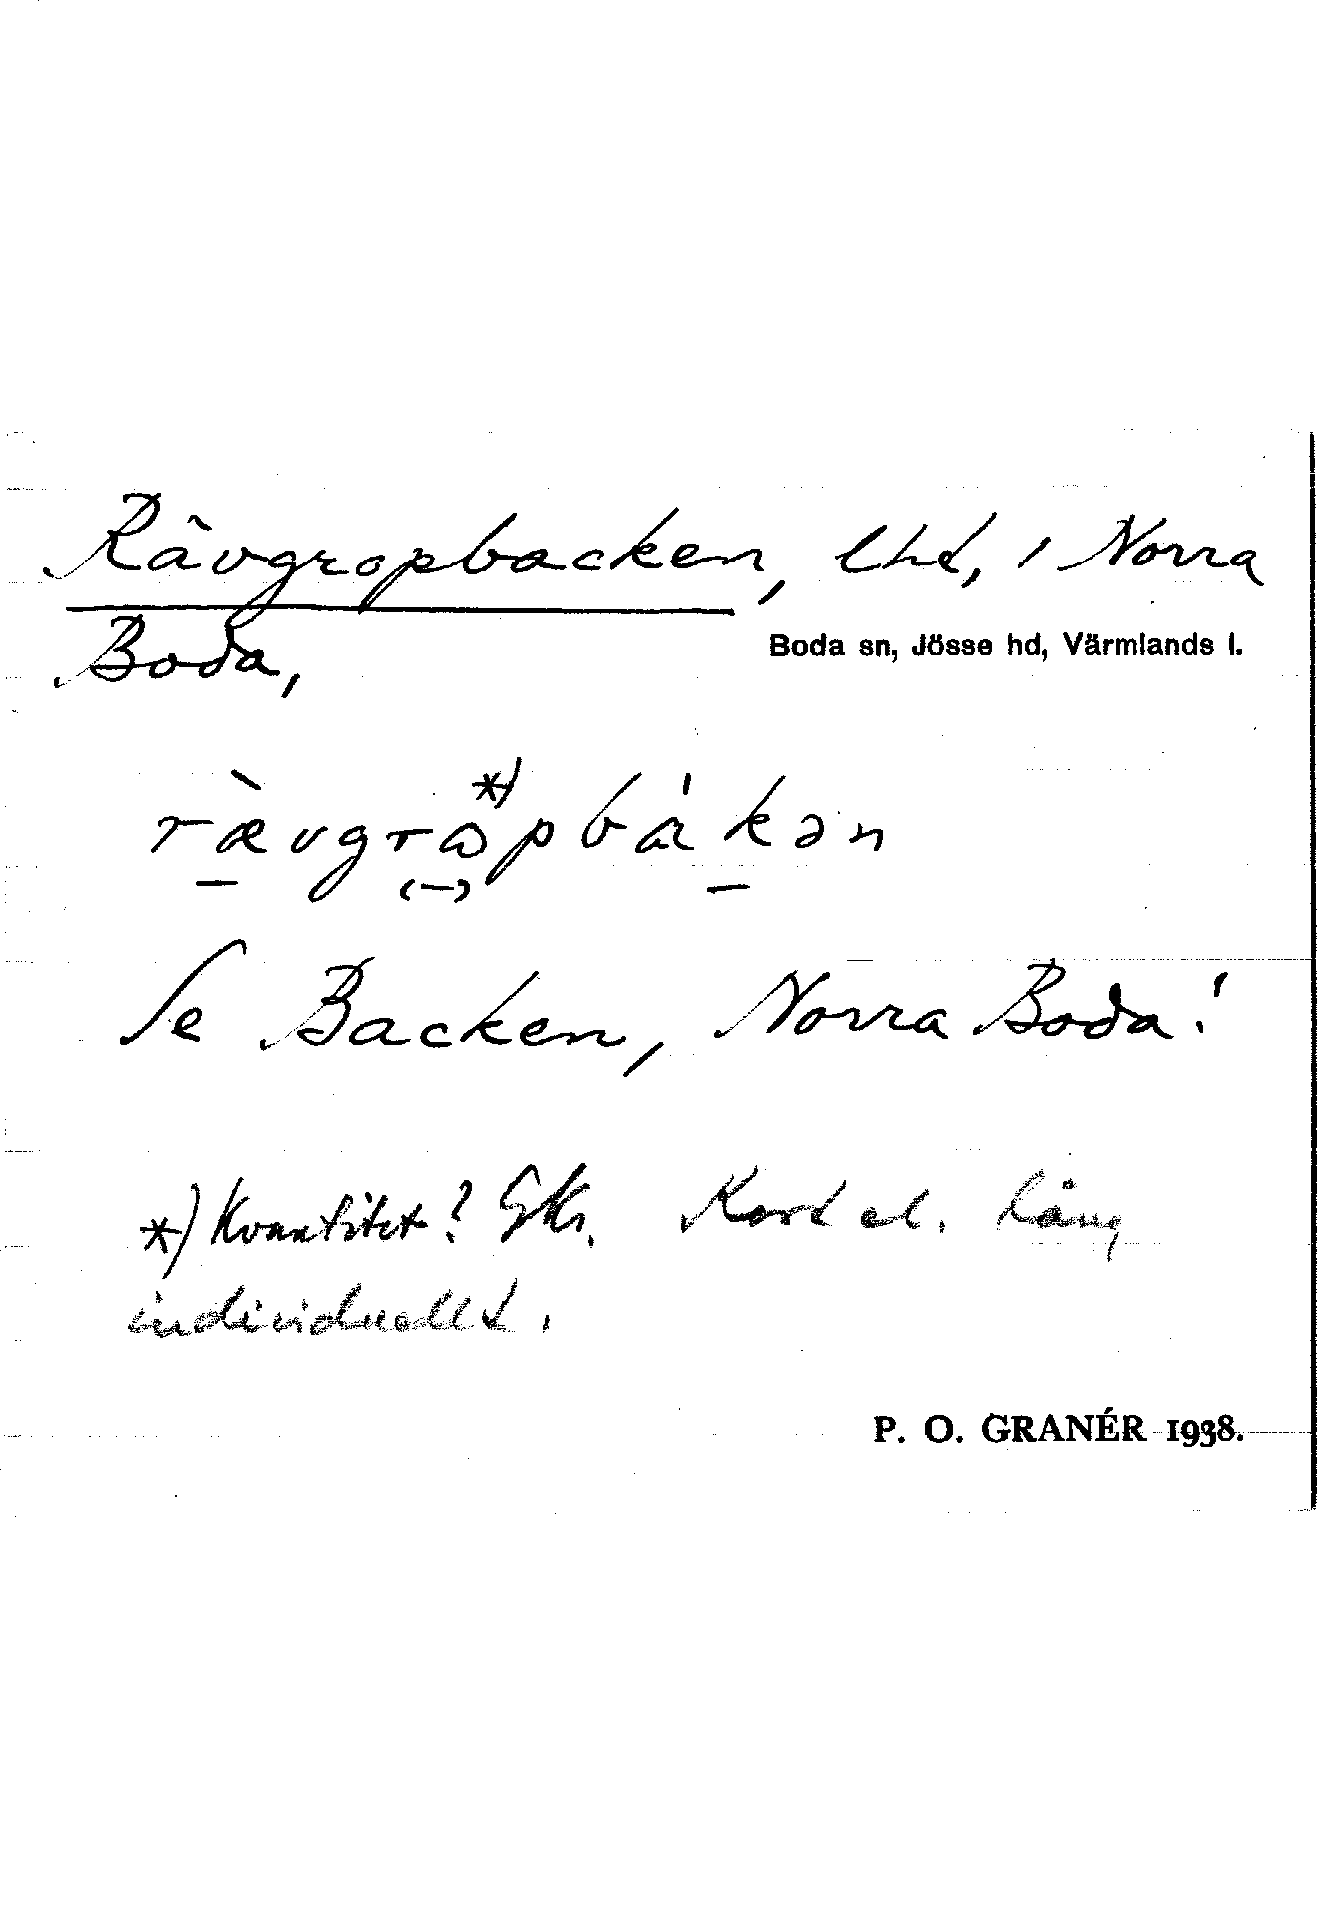 Rävgropbacken, lht, i Norra
Boda,
Boda sn, Jösse hd, Värmlands l.
*)
ræ̀vgrɷpbákən
Se Backen, Norra Boda!
*) Kvantitet? GKr. Kort el. lång
individuellt.
P. O. GRANÉR 1938.